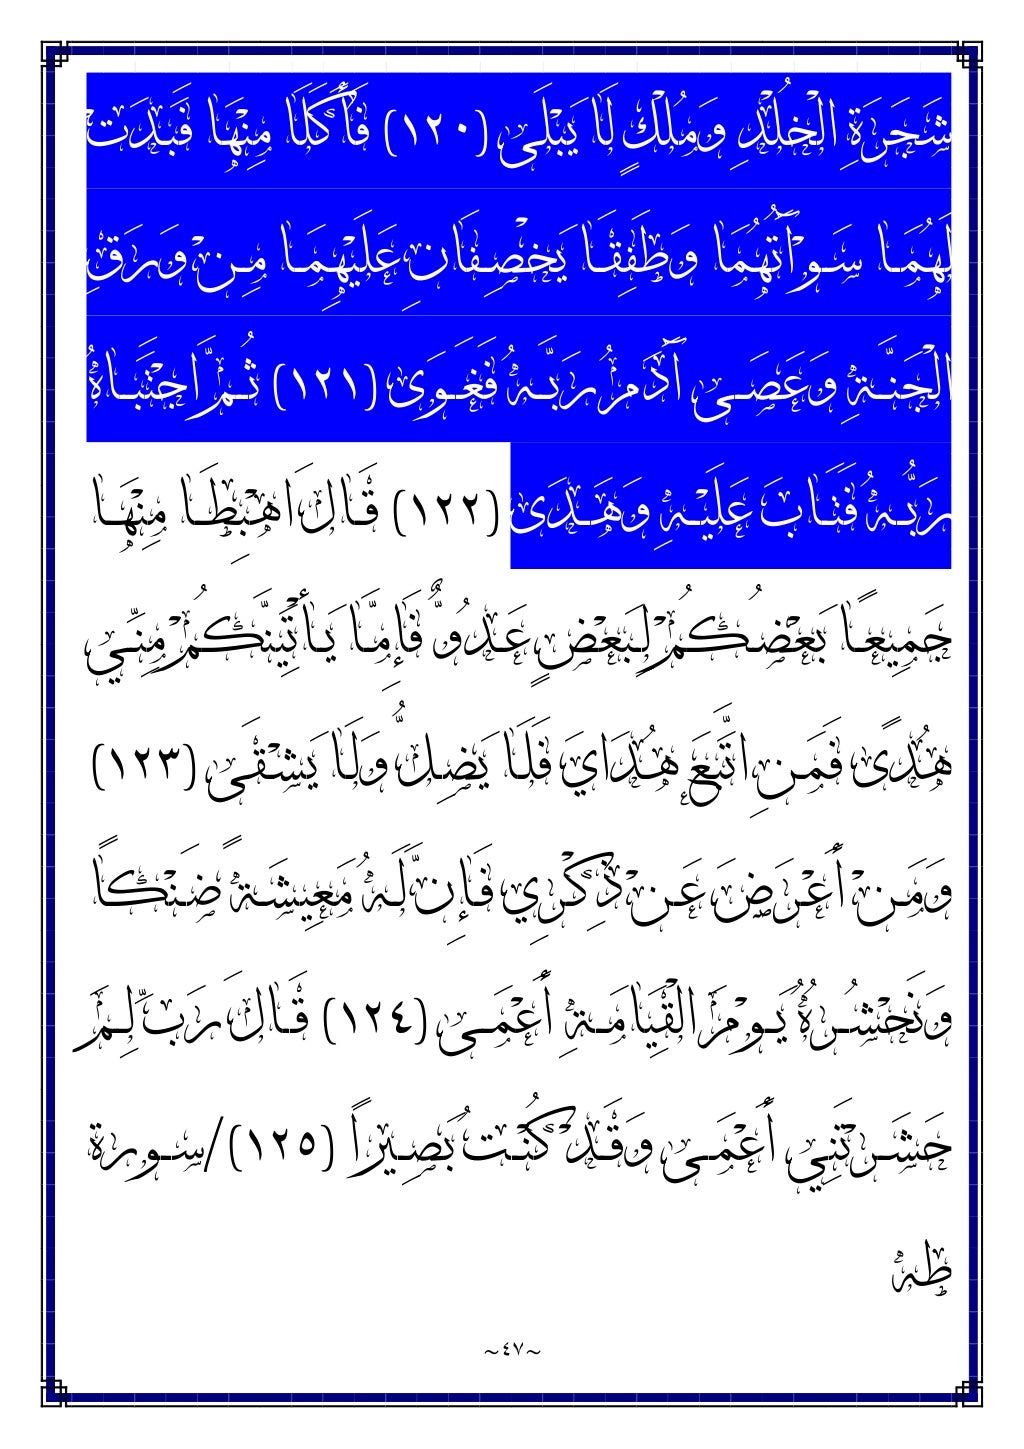 شَجَرَةِ الْخُلْدِ وَمُلْكٍ لَا يَبْلَى (١٢٠) فَأَكَلَا مِنْهَا فَبَدَتْ
لَهُمَا سَوْآتُهُمَا وَطَفِقَا يَخْصِفَانِ عَلَيْهِمَا مِنْ وَرَقِ
الْجَنَّةِ وَعَصَى آدَمُ رَبَّهُ فَغَوَى (١٢١) ثُمَّ اجْتَبَاهُ
رَبُّهُ فَتَابَ عَلَيْهِ وَهَدَى (١٢٢) قَالَ اهْبِطَا مِنْهَا
جَمِيعًا بَعْضُكُمْ لِبَعْضٍ عَدُوٌّ فَإِمَّا يَأْتِيَنَّكُمْ مِنِّي
هُدًى فَمَنِ اتَّبَعَ هُدَايَ فَلَا يَضِلُّ وَلَا يَشْقَى (١٢٣)
وَمَنْ أَعْرَضَ عَنْ ذِكْرِي فَإِنَّ لَهُ مَعِيشَةً ضَنْكًا
وَنَحْشُرُهُ يَوْمَ الْقِيَامَةِ أَعْمَى (١٢٤) قَالَ رَبِّ لِمَ
حَشَرْتَنِي أَعْمَى وَقَدْ كُنْتُ بَصِيْرًا (١٢٥)/سورة
طه
~٤٧~